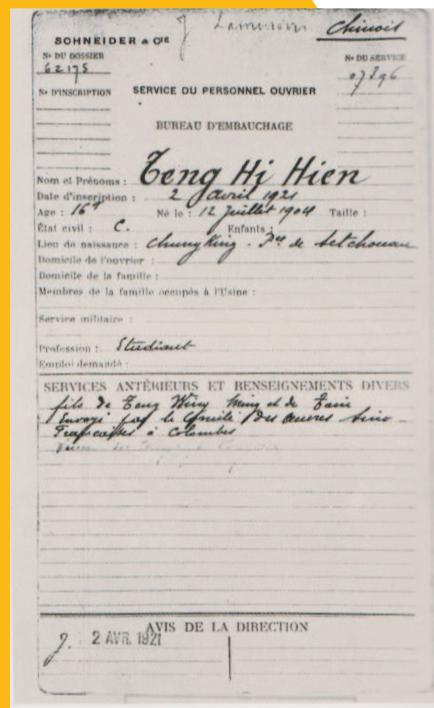 Chinois
SCHNEIDER & CIE
No DU DOSSIER
62175
No DU SERVICE
07396
No D'INSCRIPTION
SERVICE DU PERSONNEL OUVRIER
BUREAU D'EMBAUCHAGE
Nom et Prénoms : Teng Hi Hien
Date d'inscription : 2 avril 1921
Age : 16 Né le : 12 Juillet 1904 Taille :
État civil : C. Enfants :
Lieu de naissance : Chung King - de Setchouan
Domicile de l'ouvrier :
Domicile de la famille :
Membres de la famille occupés à l'Usine :
Service militaire :
Profession : Etudiant
Emploi demandé :
SERVICES ANTÉRIEURS ET RENSEIGNEMENTS DIVERS
fils de Teng Wen Ming et de Tan
Envoyé par le Comité des œuvres Sino
Françaises à Colombes
AVIS DE LA DIRECTION
2 AVR. 1921